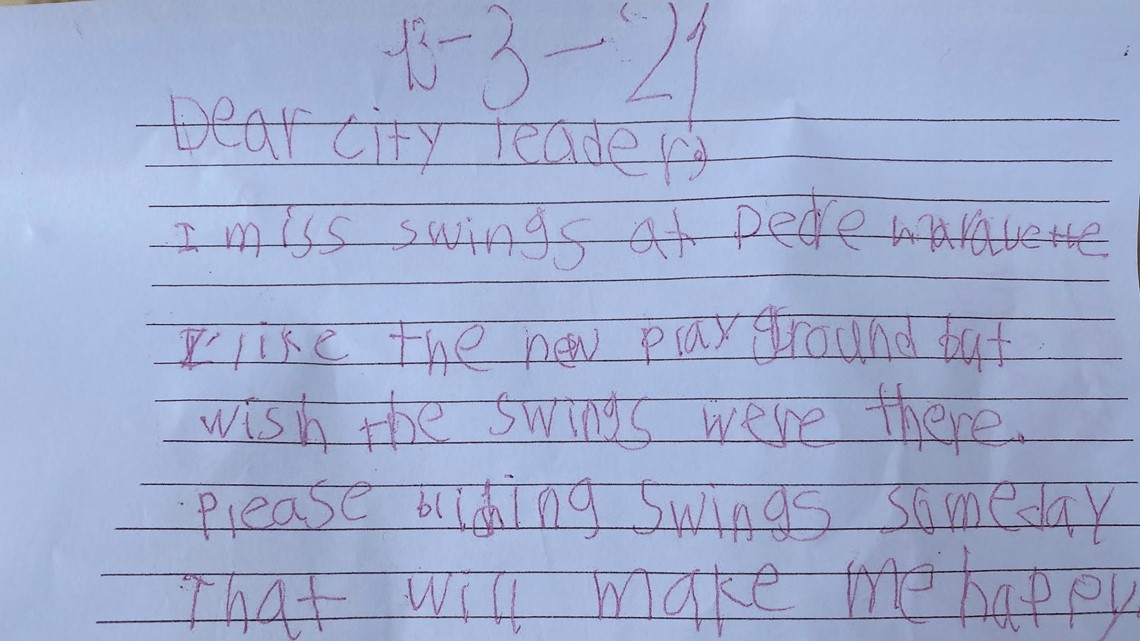 13-3-21
Dear city leader,
I miss swings at Pedre marquette
I like the new playground but
wish the swings were there.
Please swings someday
That will make me happy